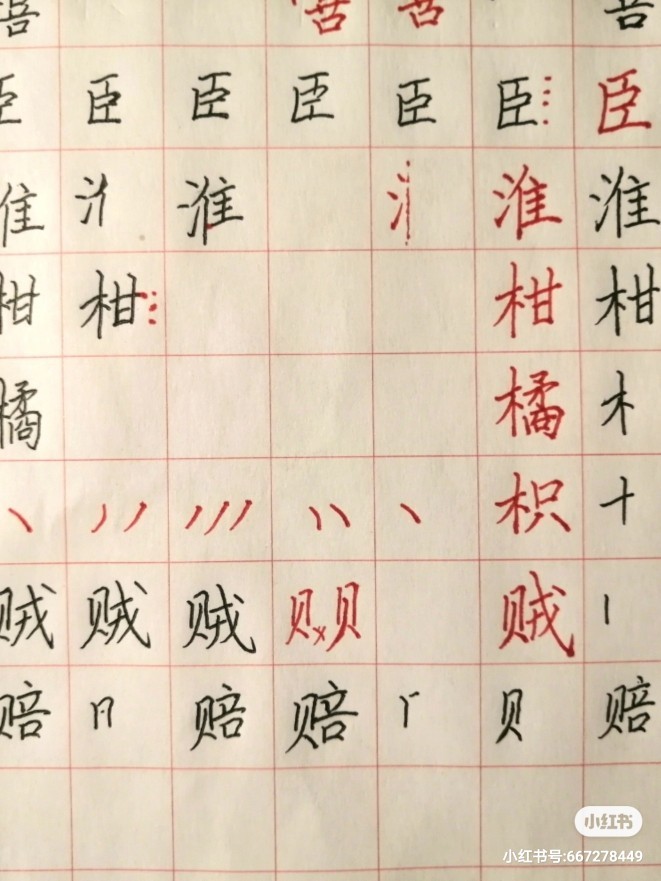 臣 臣 臣 臣 臣 臣 臣
淮 氵亻 淮 氵丨 淮 淮
柑 柑 柑 柑
橘 橘 木
丶 丿丿 丿丿丿 丶丶 丶 枳 十
贼 贼 贼 贝x贝 贼 丨
赔 赔 赔 贝 赔
小红书
小红书号:667278449